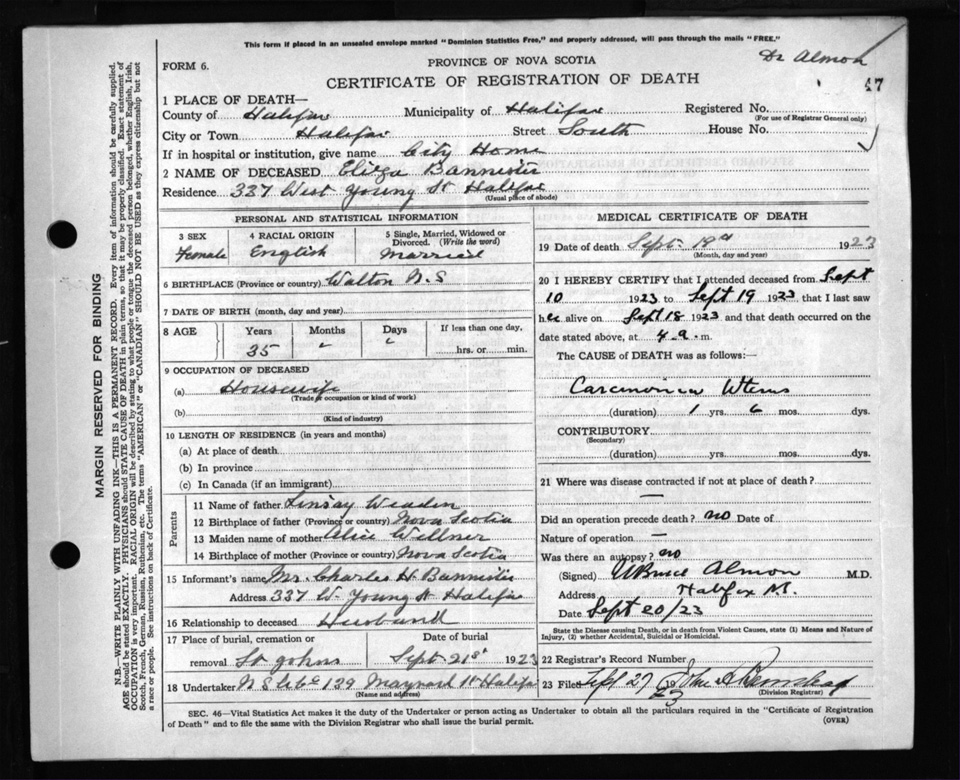 This form if placed in an unsealed envelope marked "Dominion Statistics Free," and properly addressed, will pass through the mails "FREE."
Dr Almon
FORM 6.
PROVINCE OF NOVA SCOTIA
CERTIFICATE OF REGISTRATION OF DEATH
47
1 PLACE OF DEATH—
County of Halifax Municipality of Halifax Registered No.
(For use of Registrar General only)
City or Town Halifax Street South House No.
If in hospital or institution, give name City Home
2 NAME OF DECEASED Eliza Bannister
Residence 337 West Young St Halifax
(Usual place of abode)
PERSONAL AND STATISTICAL INFORMATION
3 SEX 4 RACIAL ORIGIN 5 Single, Married, Widowed or Divorced. (Write the word)
Female English Married
6 BIRTHPLACE (Province or country) Walton N.S
7 DATE OF BIRTH (month, day and year)
8 AGE Years Months Days If less than one day,
35 " " hrs. or min.
9 OCCUPATION OF DECEASED
(a) Housewife
(Trade or occupation or kind of work)
(b)
(Kind of industry)
10 LENGTH OF RESIDENCE (in years and months)
(a) At place of death
(b) In province
(c) In Canada (if an immigrant)
Parents
11 Name of father Linsay
12 Birthplace of father (Province or country) Nova Scotia
13 Maiden name of mother Alice
14 Birthplace of mother (Province or country) Nova Scotia
15 Informant's name Mr. Charles H. Bannister
Address 337 W. Young St Halifax
16 Relationship to deceased Husband
17 Place of burial, cremation or Date of burial
removal St Johns Sept 21st 1923
18 Undertaker 139 Maynard St Halifax
(Name and address)
MEDICAL CERTIFICATE OF DEATH
19 Date of death Sept. 1923
(Month, day and year)
20 I HEREBY CERTIFY that I attended deceased from Sept
10 1923 to Sept 19 1923, that I last saw
her alive on Sept 18 1923 and that death occurred on the
date stated above, at 4 a. m.
The CAUSE of DEATH was as follows:—
Carcinoma Uterus
(duration) 1 yrs. 6 mos. dys.
CONTRIBUTORY
(Secondary)
(duration) yrs. mos. dys.
21 Where was disease contracted if not at place of death?
—
Did an operation precede death? no Date of
Nature of operation —
Was there an autopsy? no
(Signed) Bruce Almon M.D.
Address Halifax N.S.
Date Sept 20/23
State the Disease causing Death, or in death from Violent Causes, state (1) Means and Nature of Injury, (2) whether Accidental, Suicidal or Homicidal.
22 Registrar's Record Number
23 Filed Sept 27 1923 John
(Division Registrar)
SEC. 46—Vital Statistics Act makes it the duty of the Undertaker or person acting as Undertaker to obtain all the particulars required in the "Certificate of Registration
of Death" and to file the same with the Division Registrar who shall issue the burial permit.
(OVER)
MARGIN RESERVED FOR BINDING
N.B. WRITE PLAINLY WITH UNFADING INK—THIS IS A PERMANENT RECORD. Every item of information should be carefully supplied.
AGE should be stated EXACTLY. PHYSICIANS should STATE CAUSE OF DEATH in plain terms, so that it may be properly classified. Exact statement of
OCCUPATION is very important. RACIAL ORIGIN will be described by stating to what people or tongue the deceased person belonged, whether English, Irish,
Scotch, French, German, Russian, Ruthenian, etc. The terms "AMERICAN" or "CANADIAN" SHOULD NOT BE USED as they express citizenship but not
a race or people. See instructions on back of Certificate.